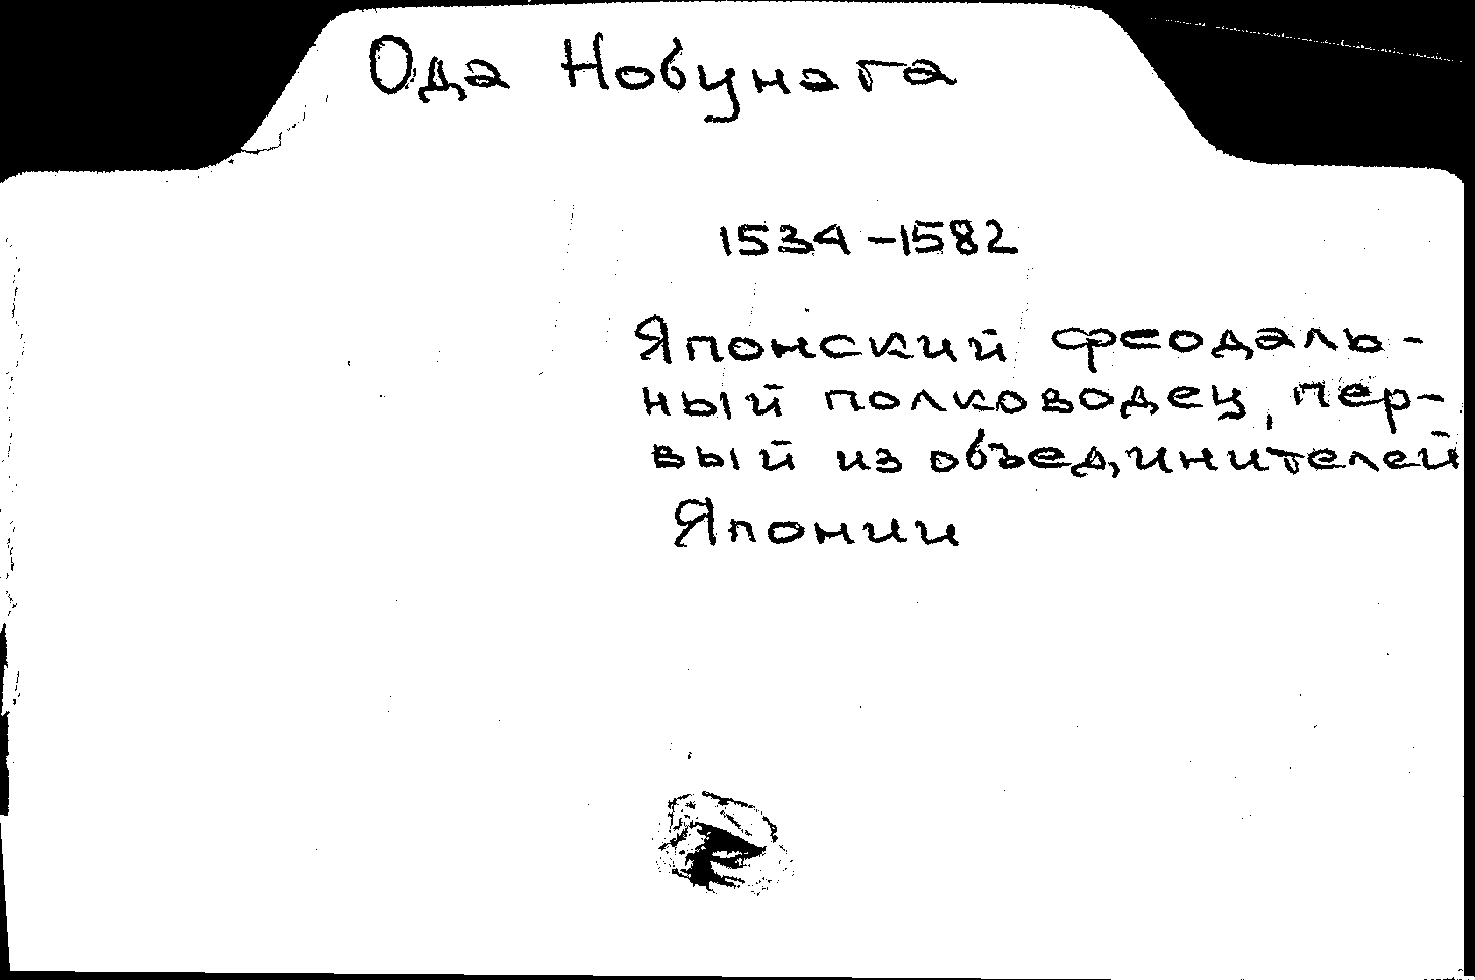 Ода Нобунага
1534-1582
Японский феодаль-
ный полководец, пер-
вый из объединителей
Японии